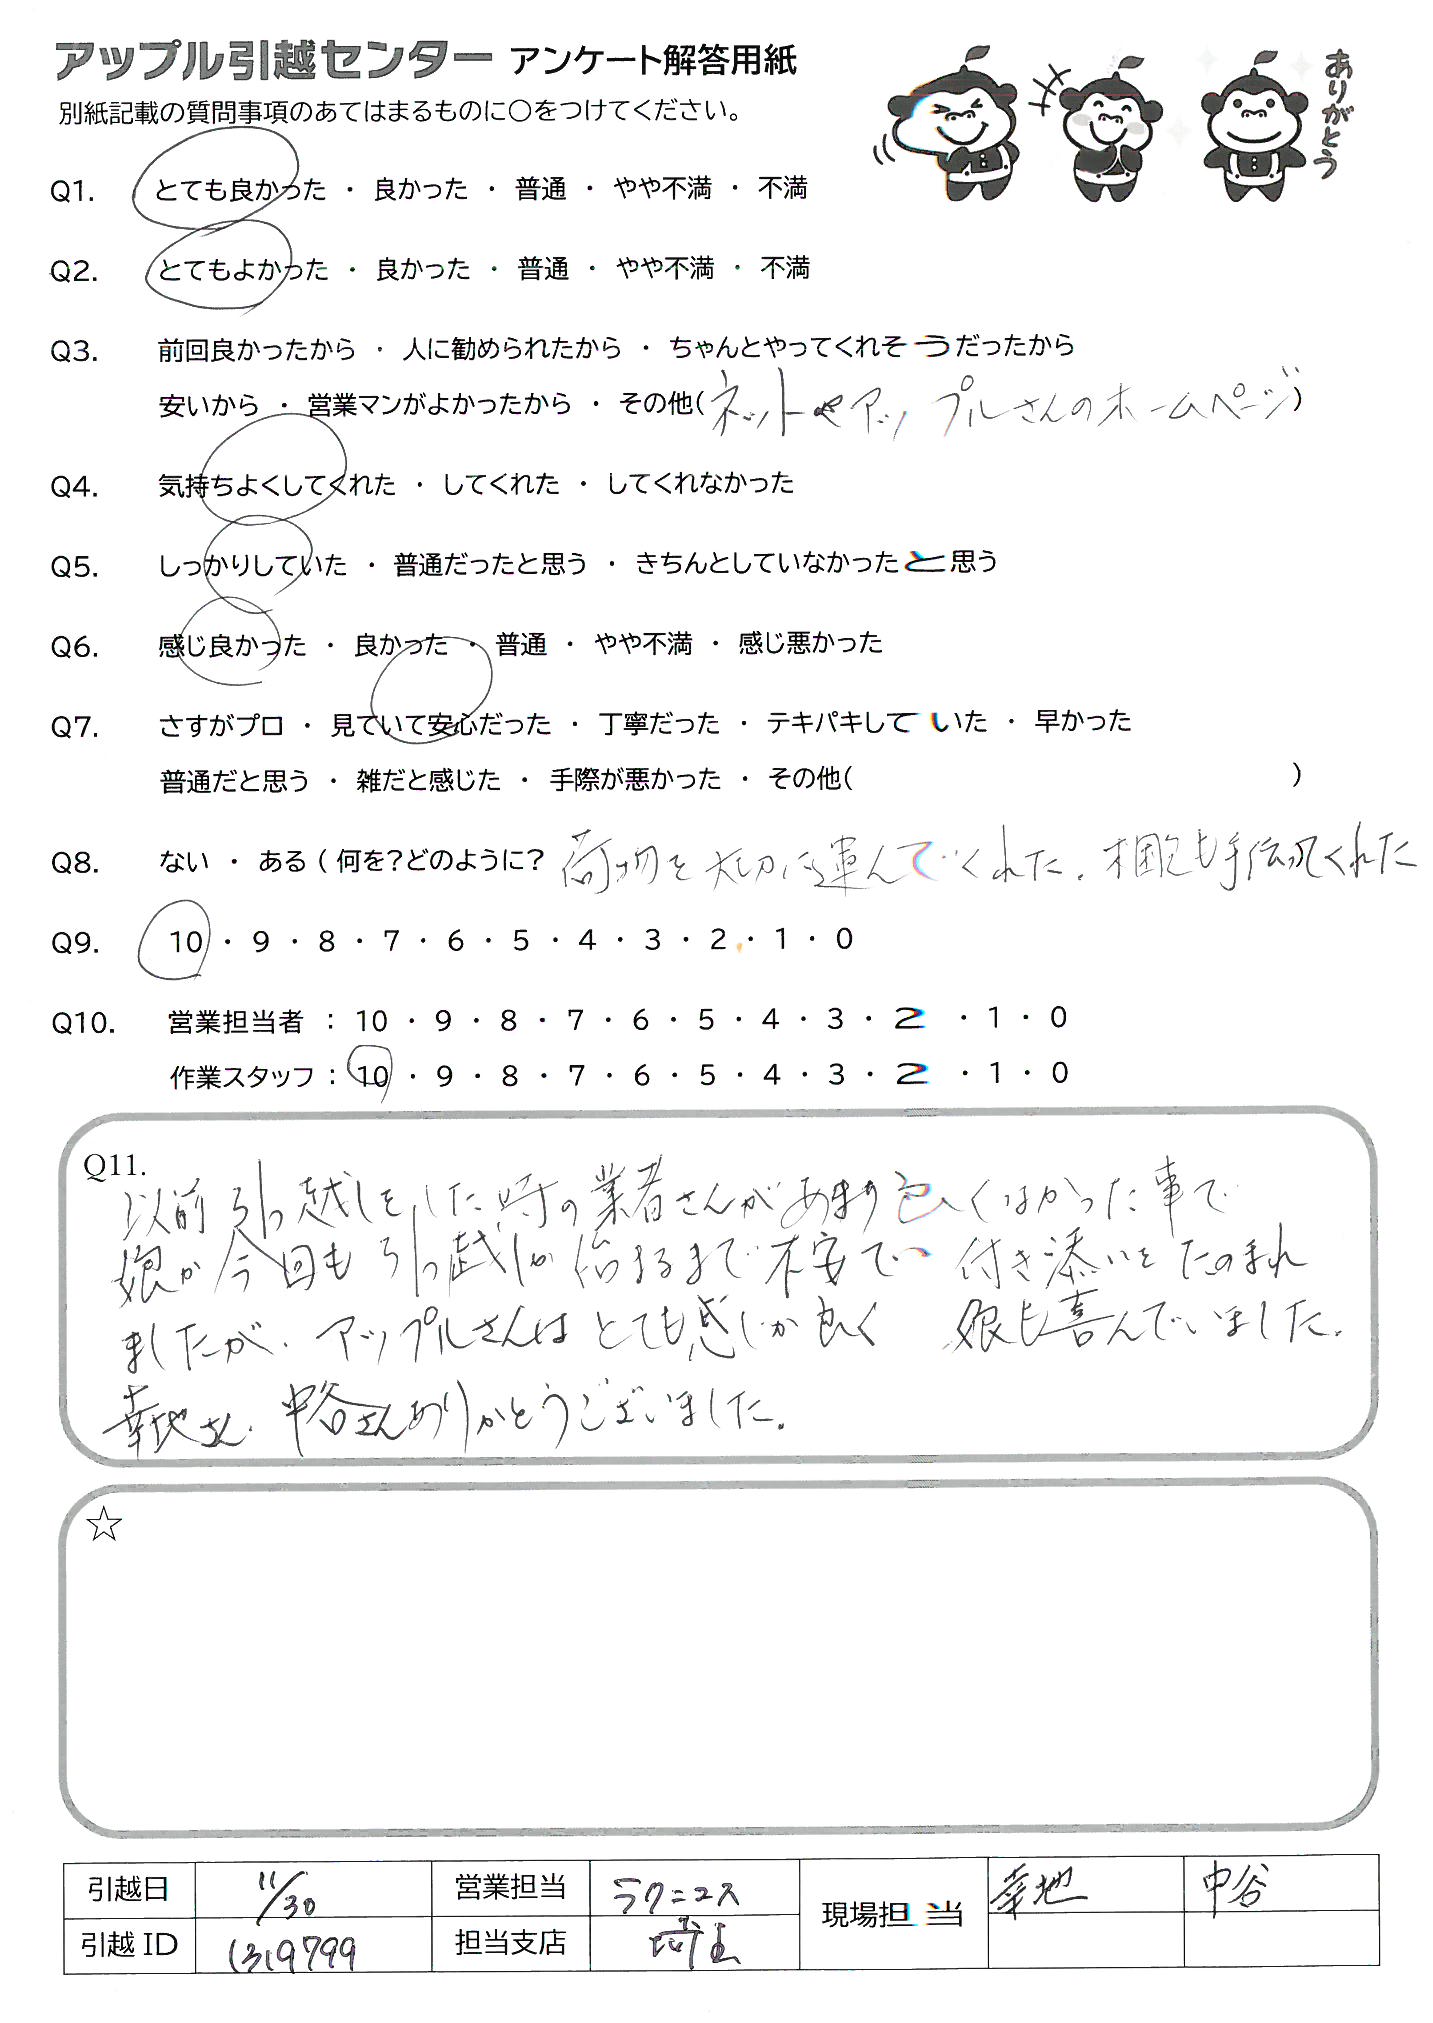 アップル引越センター アンケート解答用紙
別紙記載の質問事項のあてはまるものに○をつけてください。
ありがとう
Q1. とても良かった ・ 良かった ・ 普通 ・ やや不満 ・ 不満
Q2. とてもよかった ・ 良かった ・ 普通 ・ やや不満 ・ 不満
Q3. 前回良かったから ・ 人に勧められたから ・ ちゃんとやってくれそうだったから
安いから ・ 営業マンがよかったから ・ その他(ネットやアップルさんのホームページ)
Q4. 気持ちよくしてくれた ・ してくれた ・ してくれなかった
Q5. しっかりしていた ・ 普通だったと思う ・ きちんとしていなかったと思う
Q6. 感じ良かった ・ 良かった ・ 普通 ・ やや不満 ・ 感じ悪かった
Q7. さすがプロ ・ 見ていて安心だった ・ 丁寧だった ・ テキパキしていた ・ 早かった
普通だと思う ・ 雑だと感じた ・ 手際が悪かった ・ その他( )
Q8. ない ・ ある ( 何を?どのように? 荷物を大切に運んでくれた。梱包も手伝ってくれた
Q9. 10 ・ 9 ・ 8 ・ 7 ・ 6 ・ 5 ・ 4 ・ 3 ・ 2 ・ 1 ・ 0
Q10. 営業担当者 : 10 ・ 9 ・ 8 ・ 7 ・ 6 ・ 5 ・ 4 ・ 3 ・ 2 ・ 1 ・ 0
作業スタッフ : 10 ・ 9 ・ 8 ・ 7 ・ 6 ・ 5 ・ 4 ・ 3 ・ 2 ・ 1 ・ 0
Q11.
以前引っ越しをした時の業者さんがあまり良くなかった事で
娘が今回も引っ越しが始まるまで不安で 付き添いをたのまれ
ましたが、アップルさんはとても感じが良く 娘も喜んでいました。
幸地さん、中谷さんありがとうございました。
☆
引越日 11/30 営業担当 ラクニコス 現場担当 幸地 中谷
引越ID 1319799 担当支店 埼玉